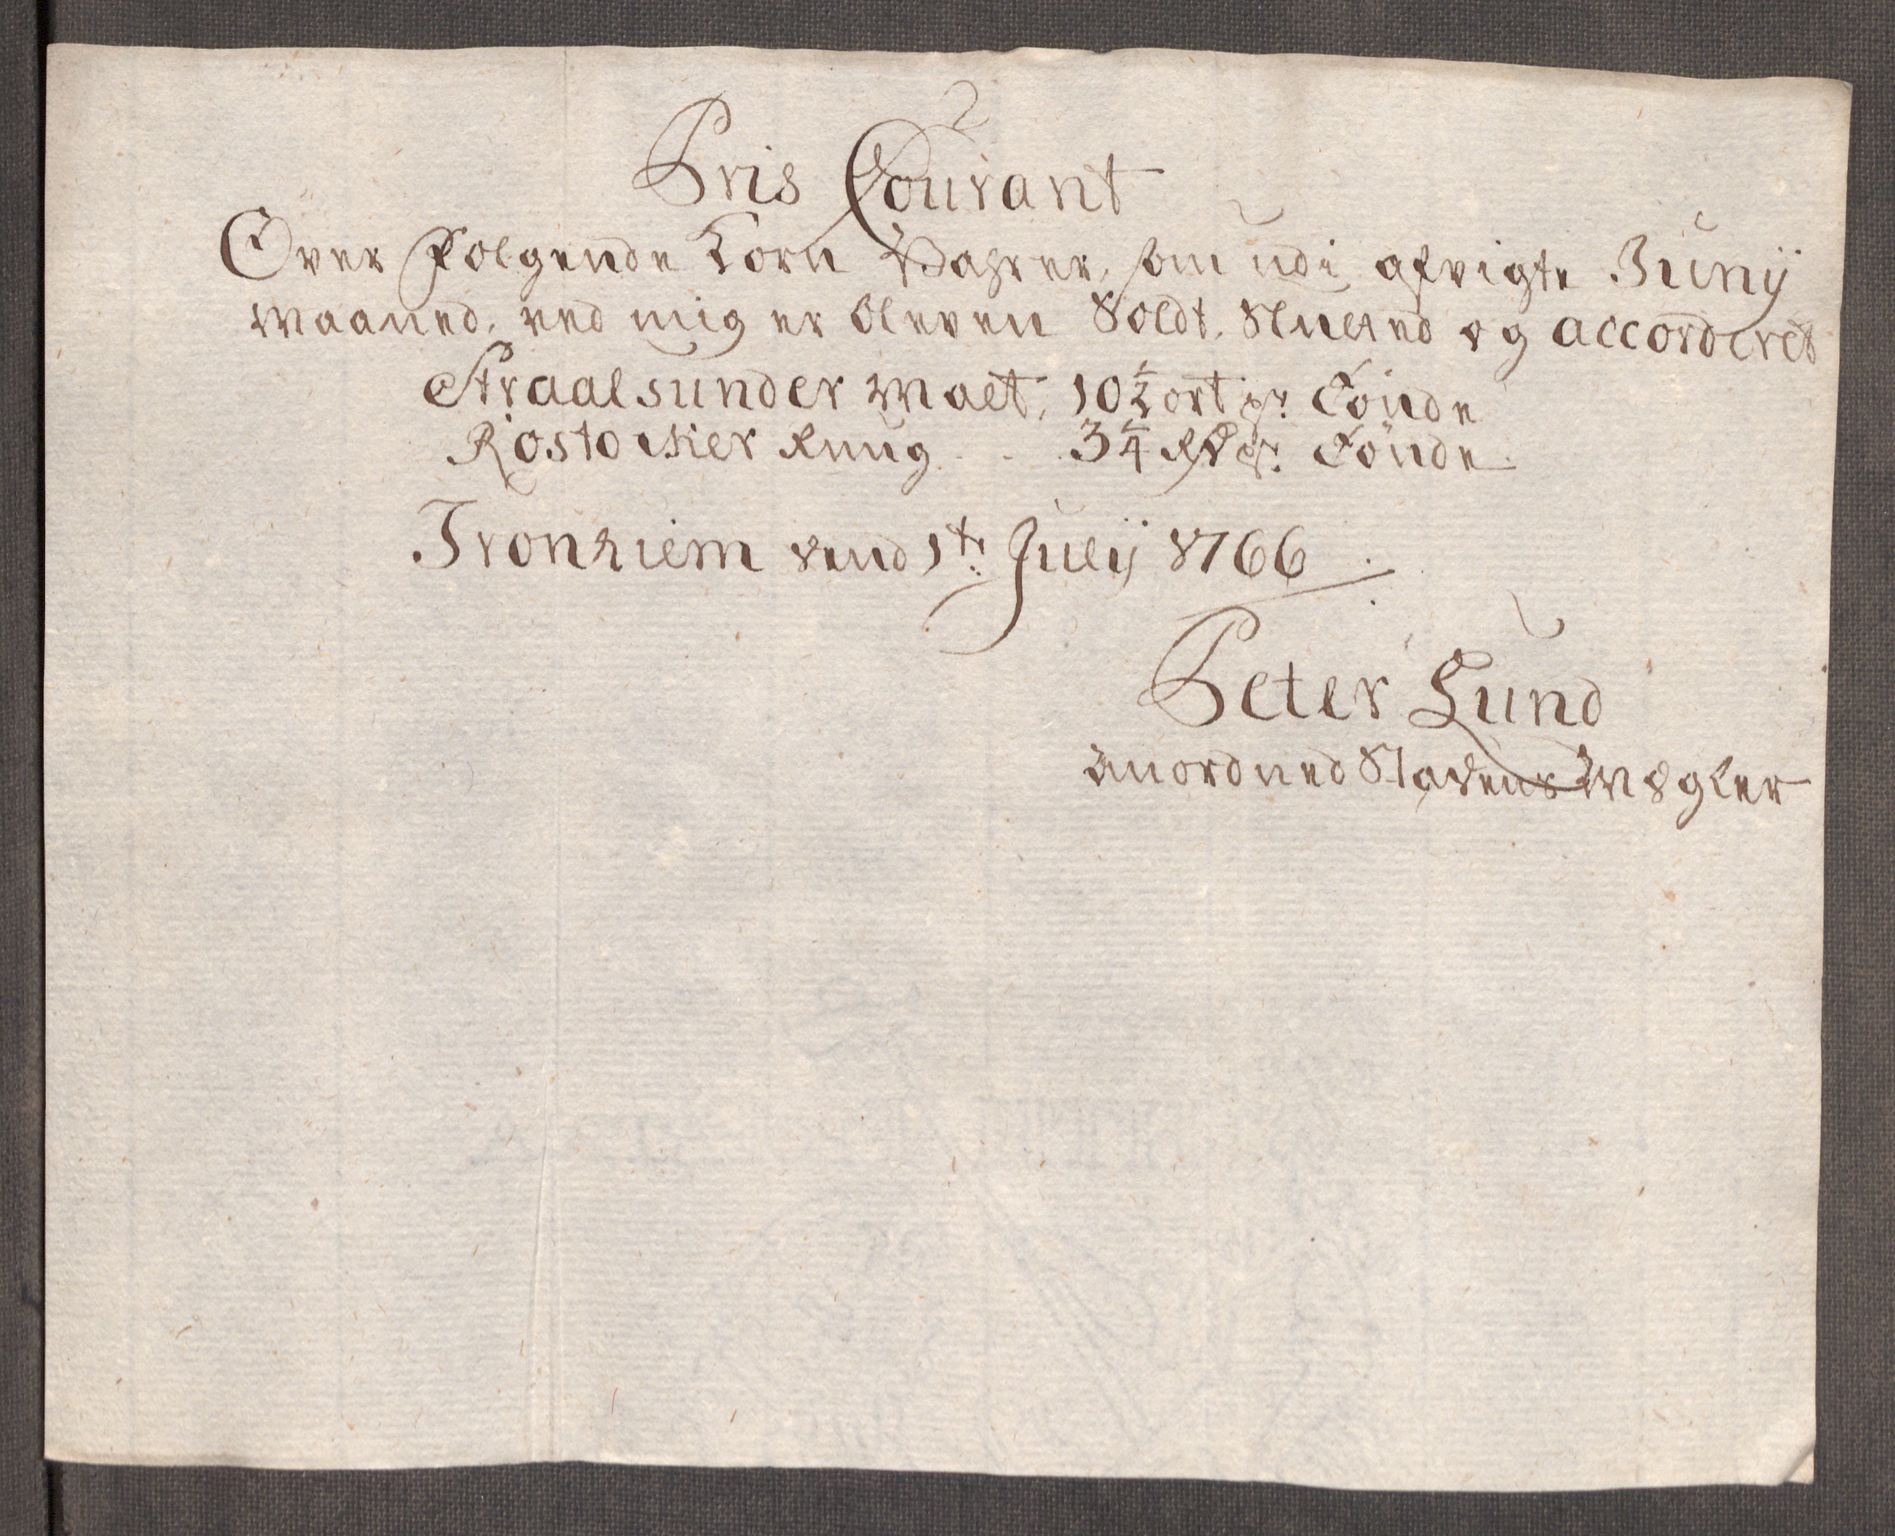 Pris Courant
Over Følgende Korn Vahrer, som udi afvigte Junij
Maaned, ved mig er bleven Soldt, Slutted og accorderet
Straalsunder Malt, 10½ ort pr Tønde
Rostocker Ruug . . 3¼ Rd pr Tønde
Tronhiem dend 1te Julij 1766
Peter Lund
Anordned Stadens Mægler